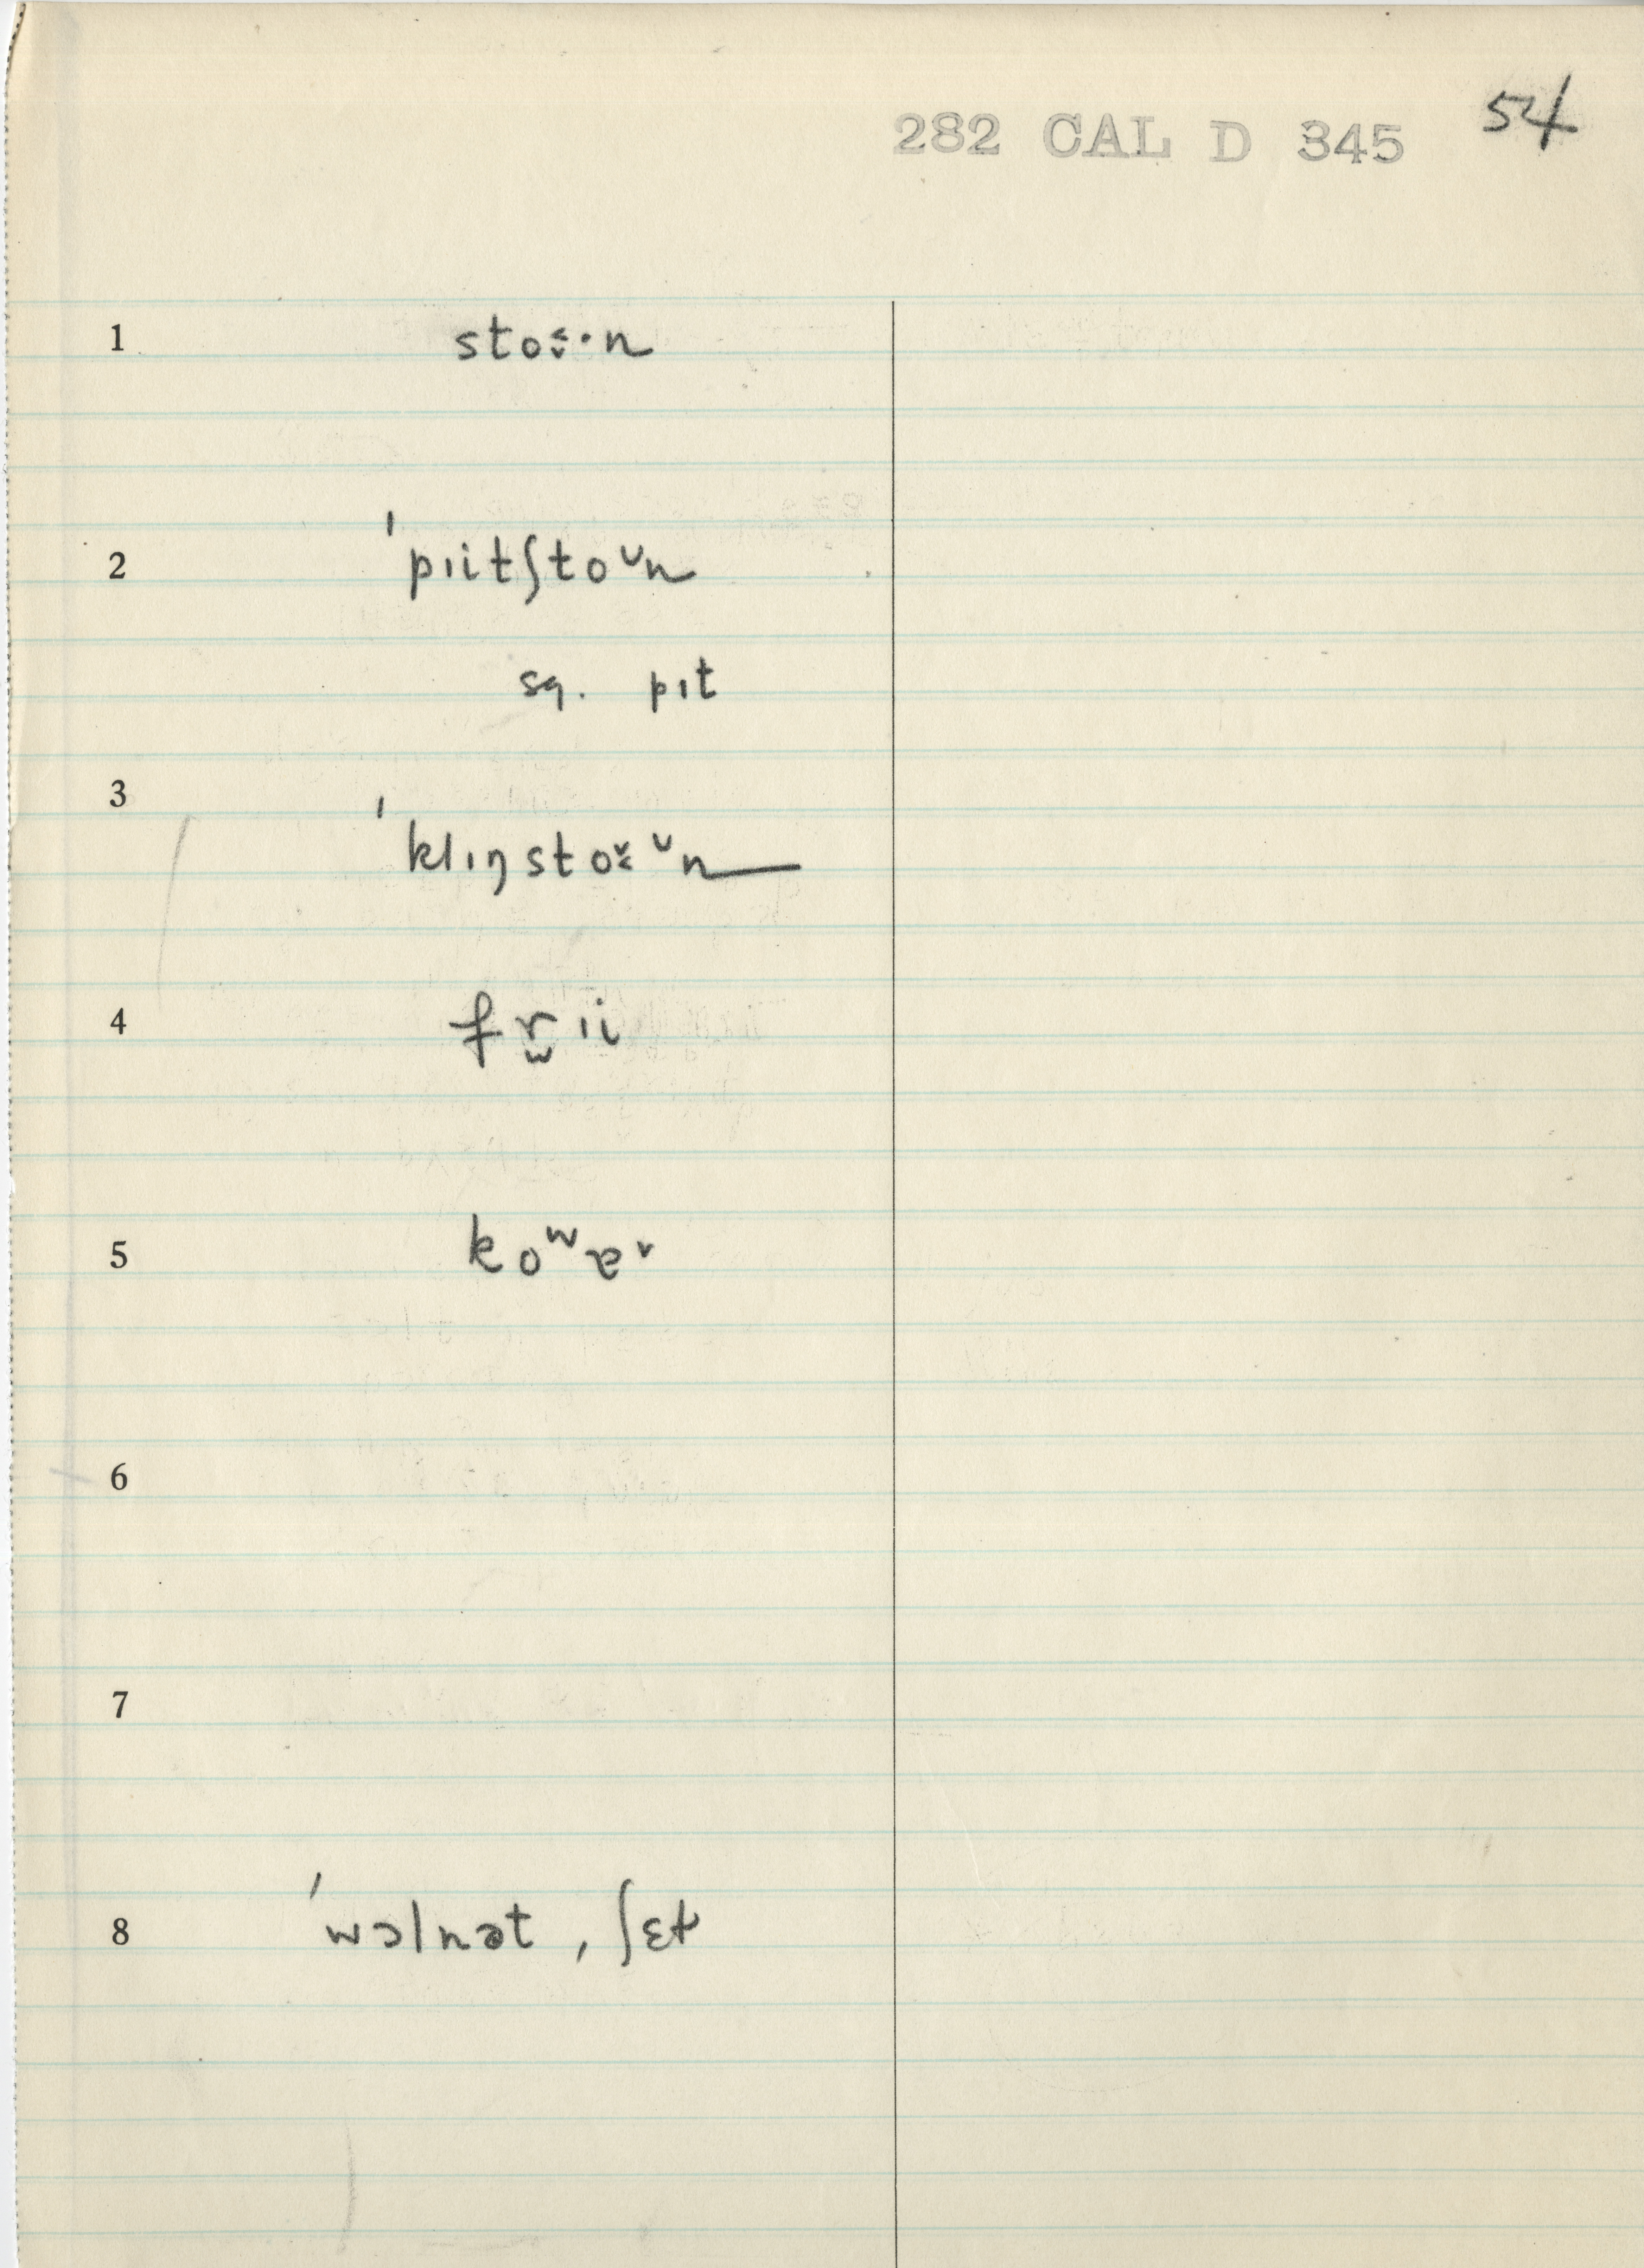 282 CAL D 345 54
1 stoˬ̆·n
2 ˈpɪitʃtoᴜn
sq. pɪt
3 ˈklɪŋstoˬ ᴜn
4 fr̬ɪi
5 koʷɐʳ
6
7
8 ˈwɔlnət, ʃɛɫ